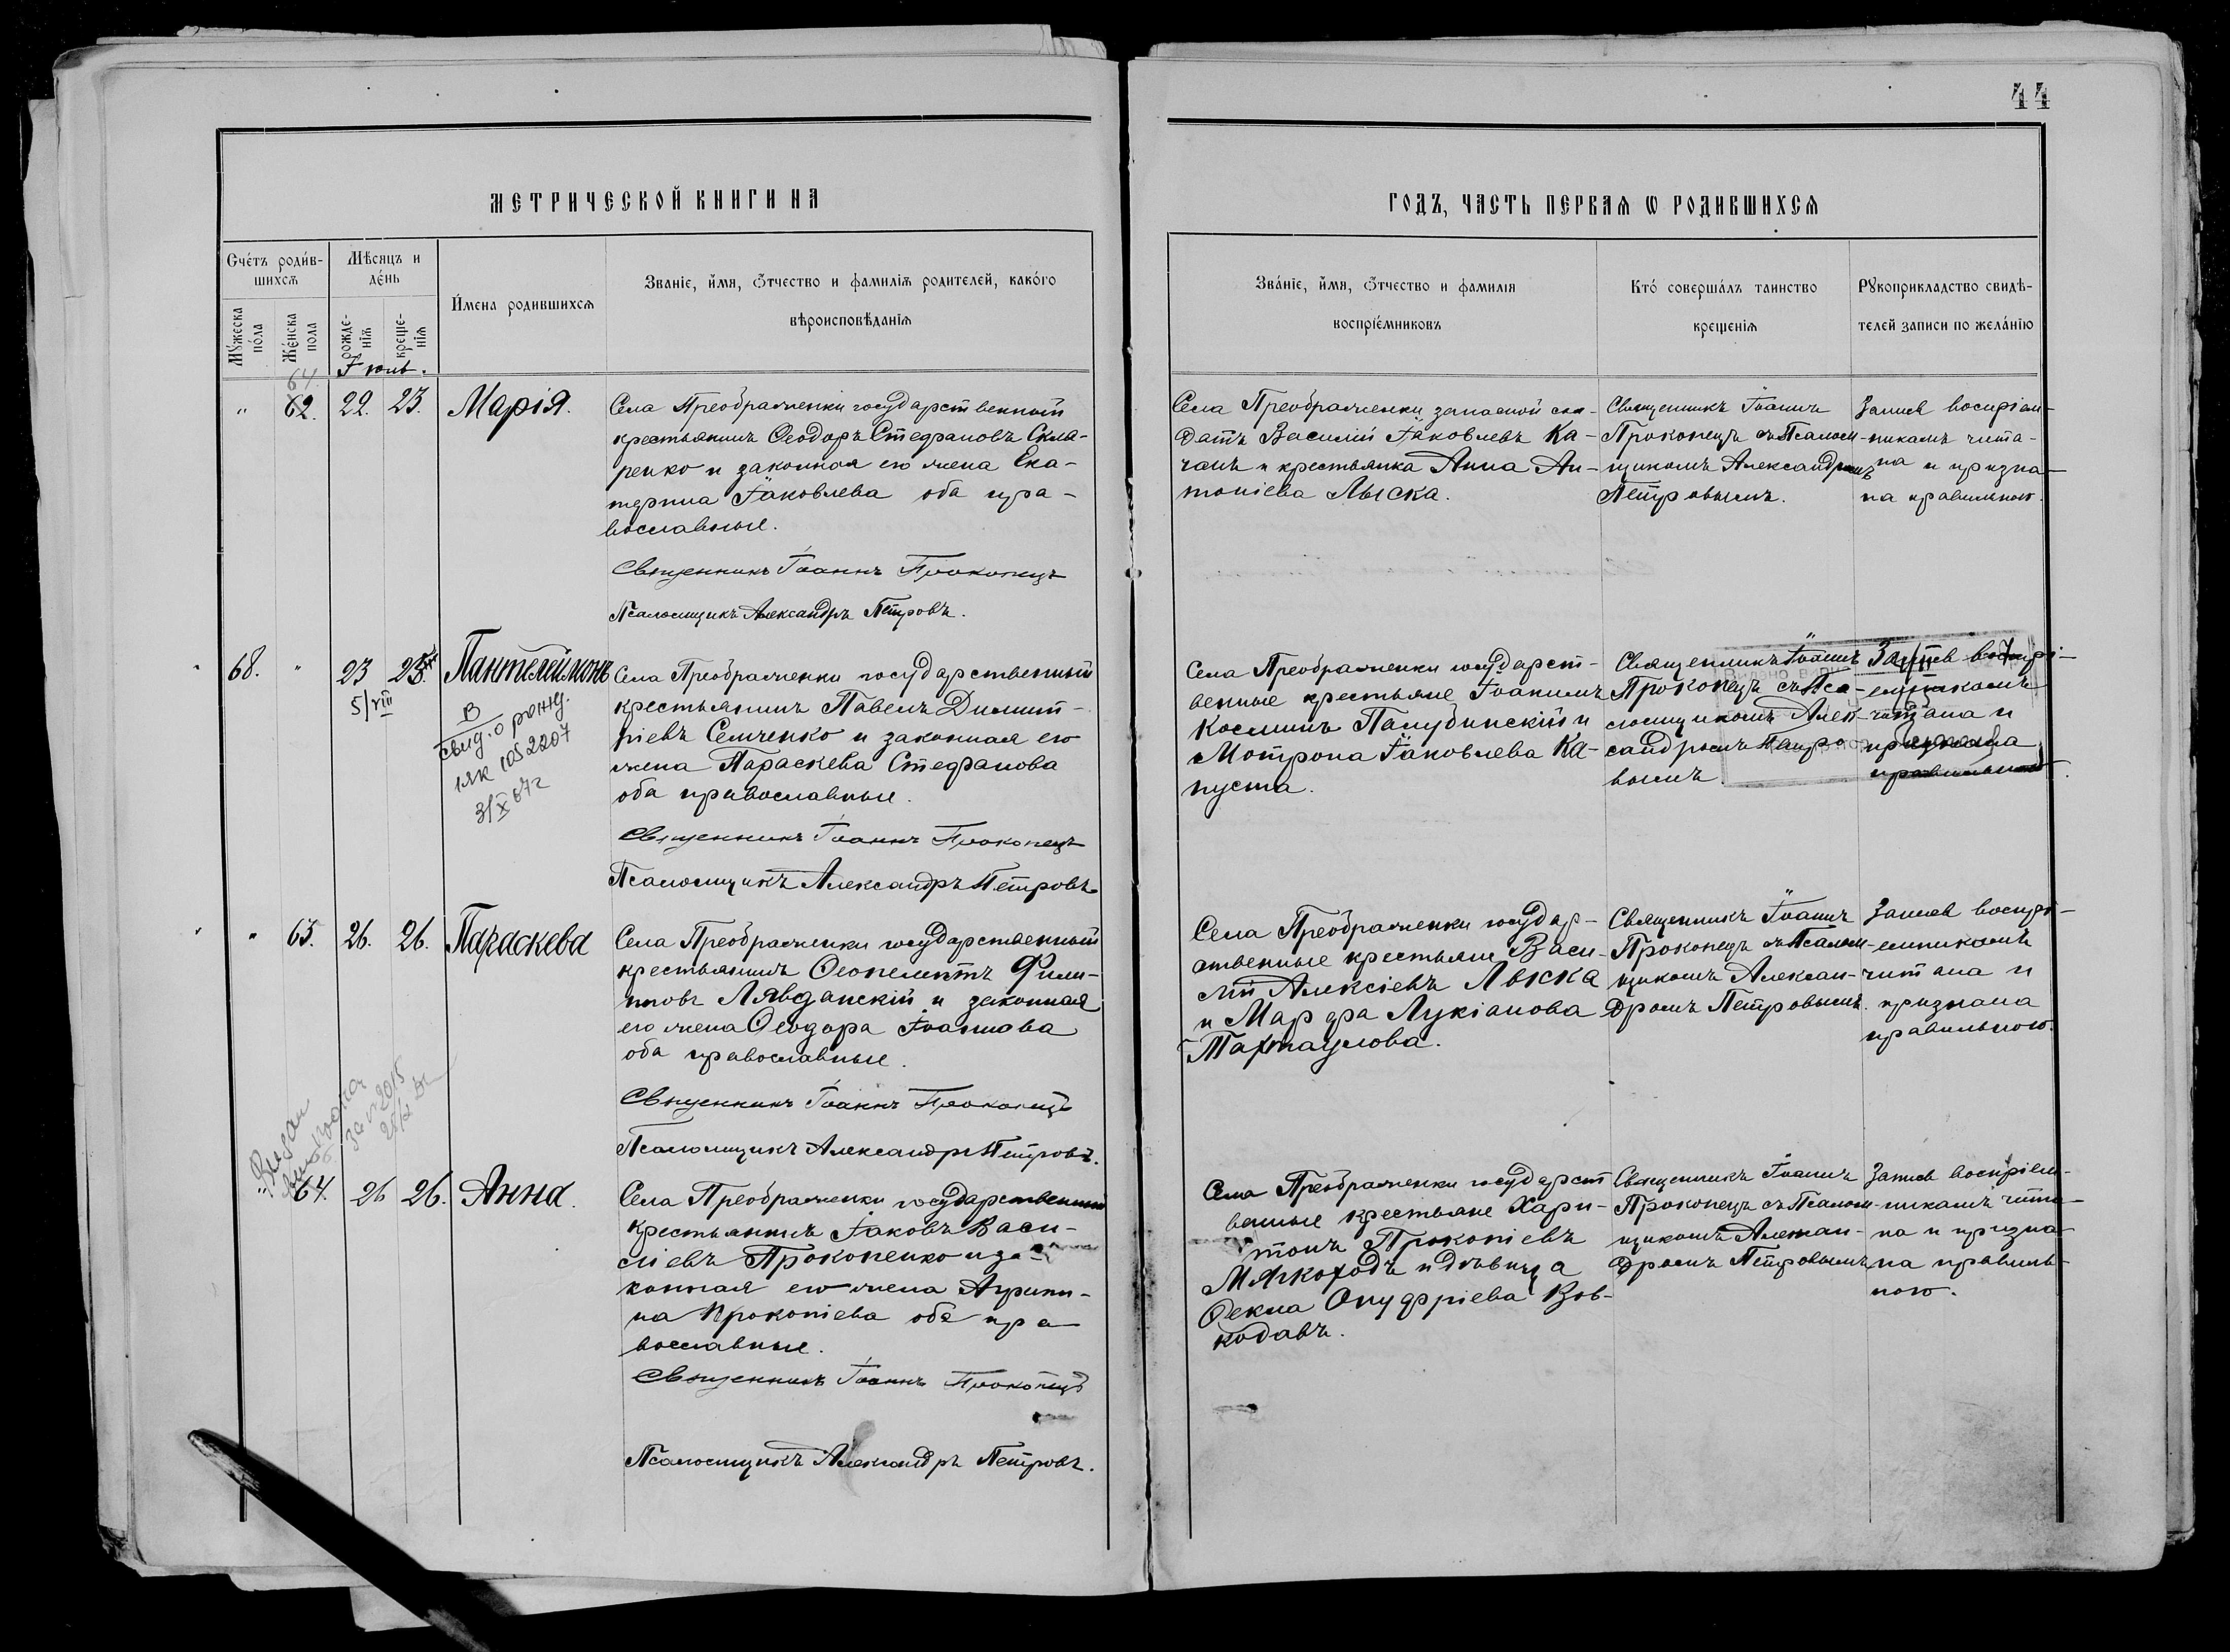 44
МЕТРИЧЕСКОЙ КНИГИ НА
ГОДЪ, ЧАСТЬ ПЕРВАЯ Ѡ РОДИВШИХСѦ
Счéтъ роди́в-
шихсѧ
Мѣсяцъ и
дéнь
И́мена родившихсѧ
Званіе, и́мя, ѻ́тчество и фамиліѧ родителей, какóго
вѣроисповѣданіѧ
Мꙋжеска
пóла
Жéнска
пола
рожде-
ніѧ
креще-
нія
Зва́ніе, и́мя, ѻ́тчество и фамиліѧ
воспріéмниковъ
Ктó соверша́лъ таинство
крещеніѧ
Рꙋкоприкладство свидѣ-
телей записи по жела́нію
Іюль.
64.
" 62. 22. 23. Марія.
Села Преображенки государственный
крестьянинъ Ѳеодоръ Стефановъ Скля-
ренко и законная его жена Ека-
терина Іаковлева оба пра-
вославные.
Священникъ Іоаннъ Прокопецъ
Псаломщикъ Александръ Петровъ.
Села Преображенки запасной сол-
датъ Василій Іаковлевъ Ка-
чанъ и крестьянка Анна Ан-
тоніева Лыска.
Священникъ Іоаннъ
Прокопецъ съ Псалом-
щикомъ Александромъ
Петровымъ.
Запись воспріем-
никамъ чита-
на и призна-
на правильною.
68. " 23 25. Пантелеймонъ
5/VIII
В
свид. о рожд.
1ЯК 1052207
3/X 67г
Села Преображенки государственный
крестьянинъ Павелъ Димит-
ріевъ Семченко и законная его
жена Параскева Стефанова
оба православные.
Священникъ Іоаннъ Прокопецъ
Псаломщикъ Александръ Петровъ
Села Преображенки государст-
венные крестьяне Іоакимъ
Косминъ Палубинскій и
Мотрона Іаковлева Ка-
пуста.
Священникъ Іоаннъ
Прокопецъ съ Пса-
ломщикомъ Алек-
сандромъ Петро-
вымъ.
Запись воспрі-
емникамъ
читана и
признана
правильною.
" 63. 26. 26. Параскева
Села Преображенки государственный
крестьянинъ Ѳеопемптъ Фили-
повъ Лявданскій и законная
его жена Ѳеодора Іоаннова
оба православные.
Священникъ Іоаннъ Прокопецъ
Псаломщикъ Александръ Петровъ.
Села Преображенки государ-
ственные крестьяне Васи-
лій Алексіевъ Лыска
и Марфа Лукіанова
Тахтаулова.
Священникъ Іоаннъ
Прокопецъ съ Псалом-
щикомъ Алексан-
дромъ Петровымъ.
Запись воспрі-
емникамъ
читана и
признана
правильною.
" 64. 26 26. Анна.
Села Преображенки государственный
крестьянинъ Іаковъ Васи-
ліевъ Прокопенко и за-
конная его жена Агрипи-
на Прокопіева оба пра
вославные.
Священникъ Іоаннъ Прокопецъ
Псаломщикъ Александръ Петровъ.
Села Преображенки государст
венные крестьяне Хари-
тонъ Прокопіевъ
Мягкоходъ и дѣвица
Ѳекла Онуфріева Вов-
кодавъ.
Священникъ Іоаннъ
Прокопецъ съ Псалом-
щикомъ Алексан-
дромъ Петровымъ
Запись воспріем-
никамъ чита-
на и призна-
на правиль-
ною.